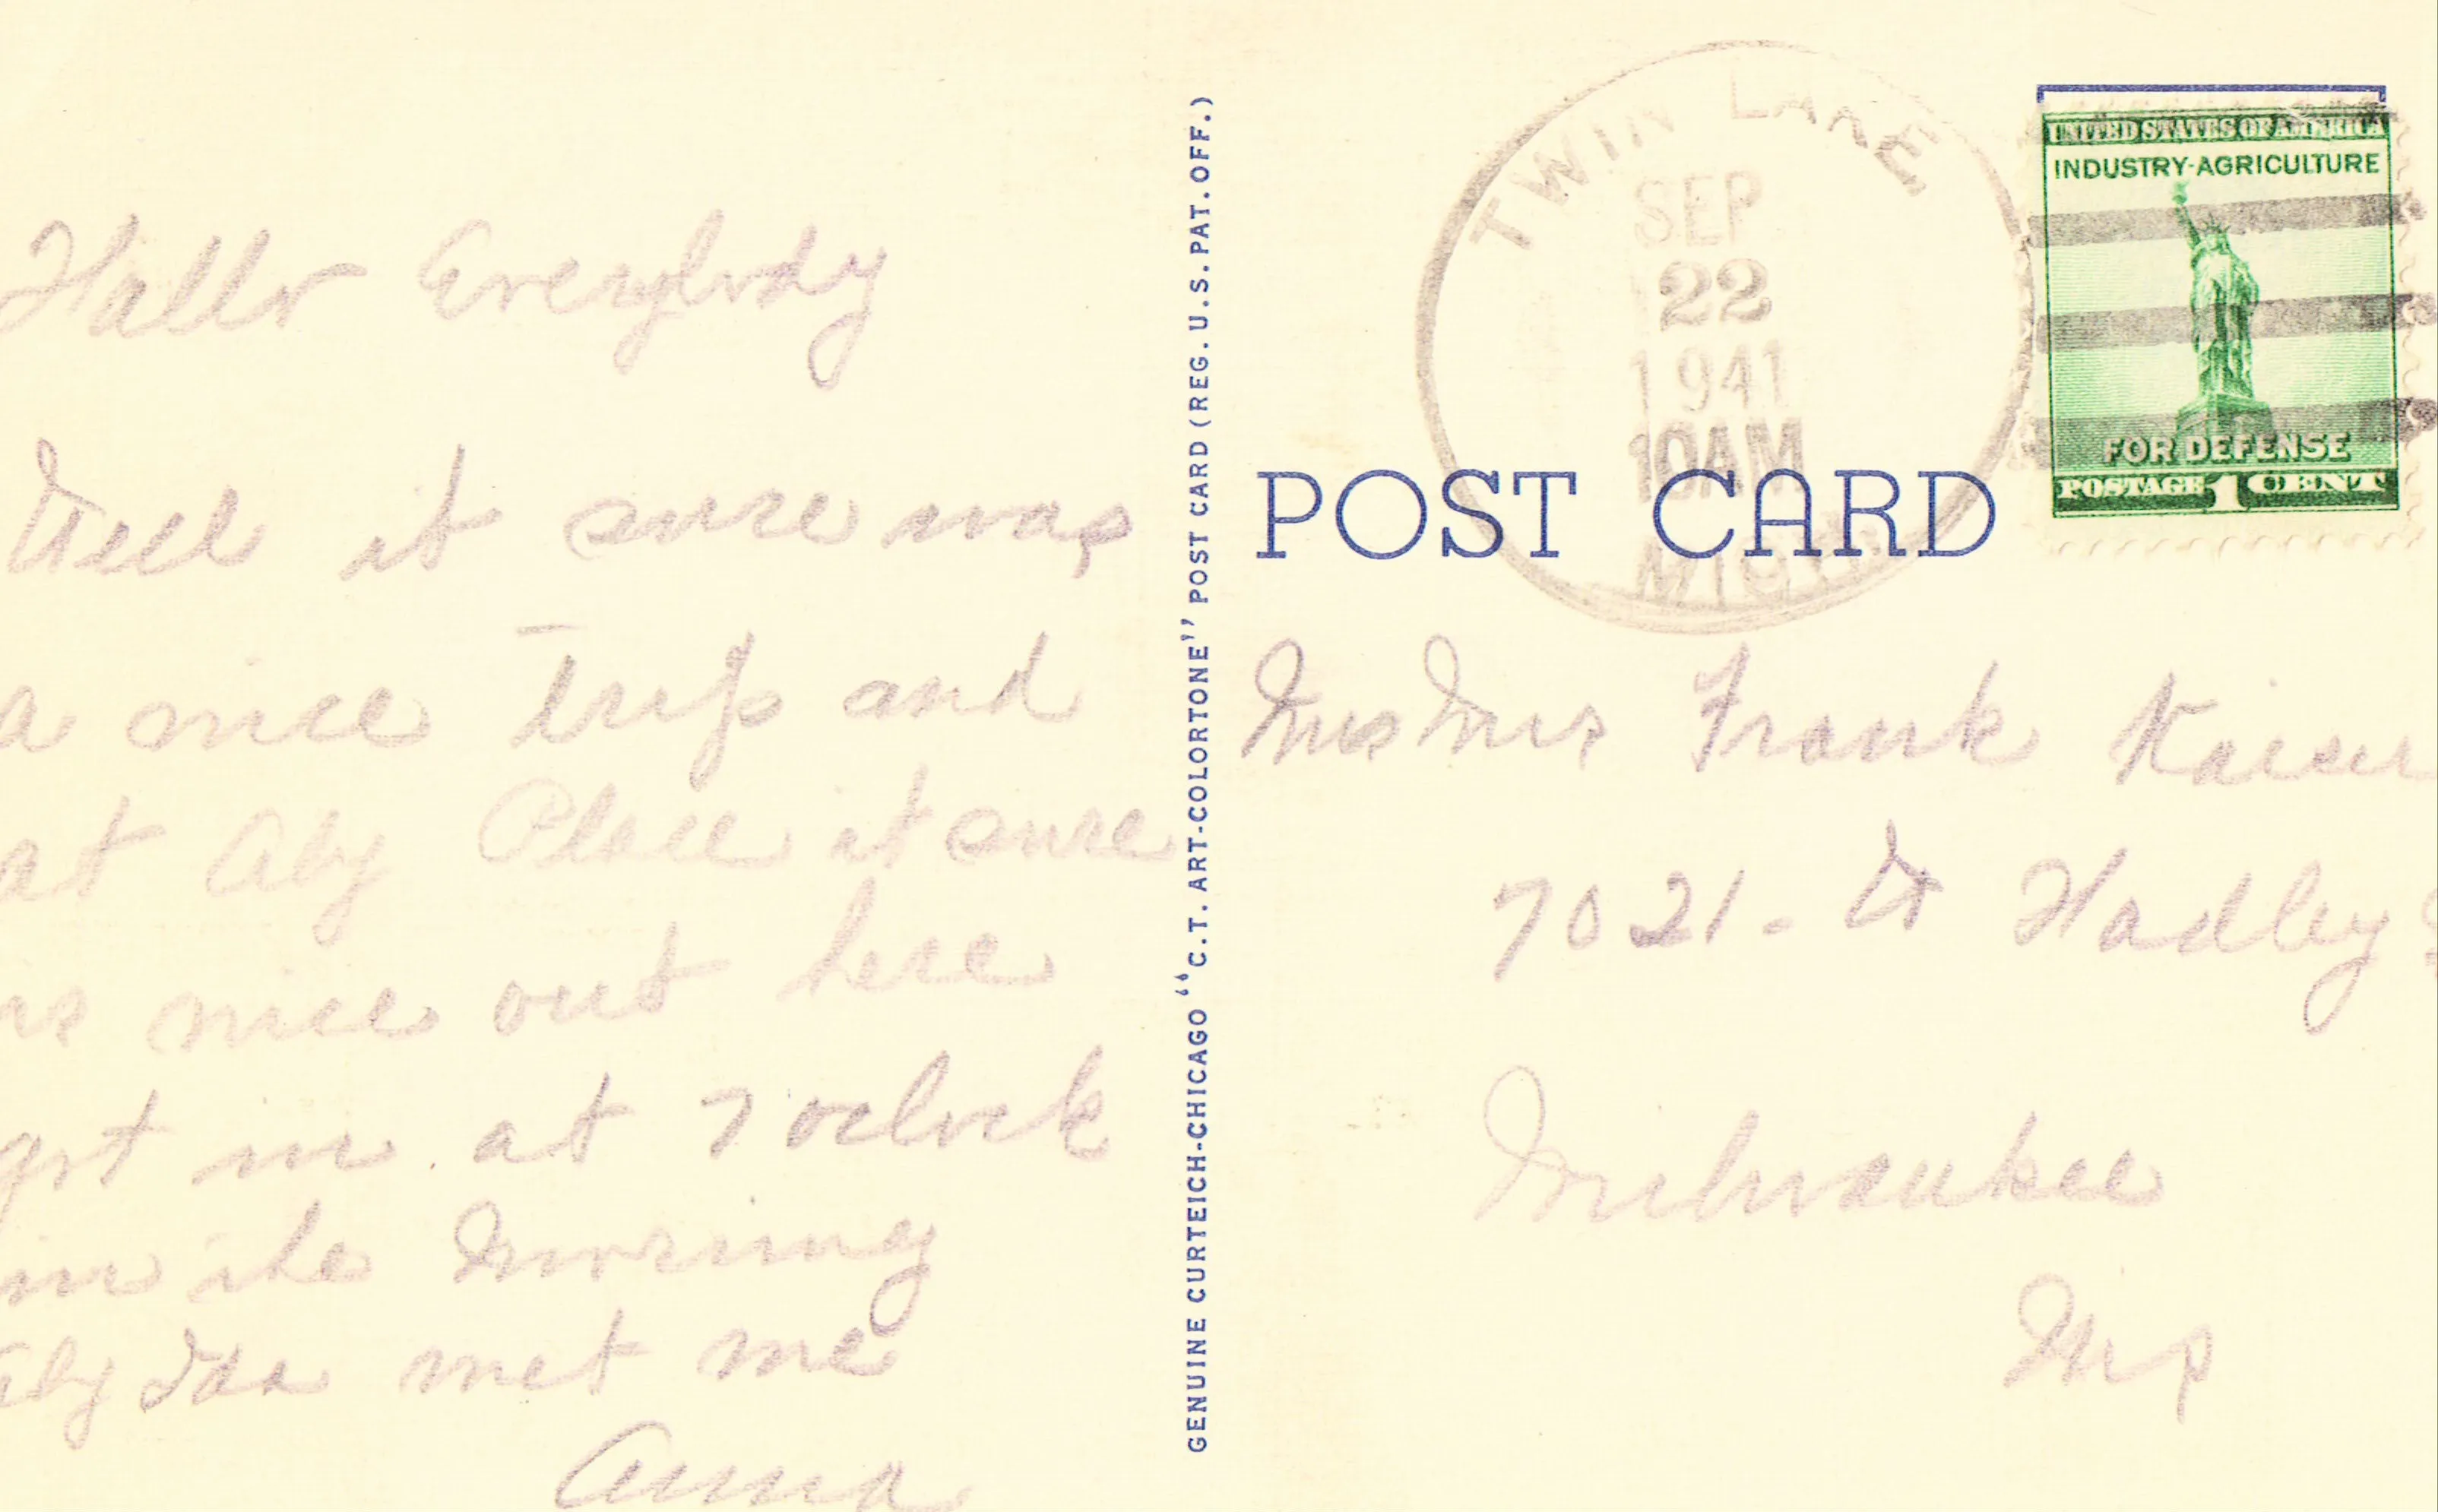 Hallo Everybody
Well it sure was
a nice Trip and
at Aby Place it sure
is nice out here
got in at 7 oclock
in the Morning
Aby Ida met me
Anna
GENUINE CURTEICH-CHICAGO "C.T. ART-COLORTONE" POST CARD (REG. U.S. PAT. OFF.)
TWIN LAKE
SEP
22
1941
10AM
MICH.
UNITED STATES OF AMERICA
INDUSTRY-AGRICULTURE
FOR DEFENSE
POSTAGE 1 CENT
POST CARD
Mrs Frank Kaiser
7021 - W Hadley
Milwaukee
Wis